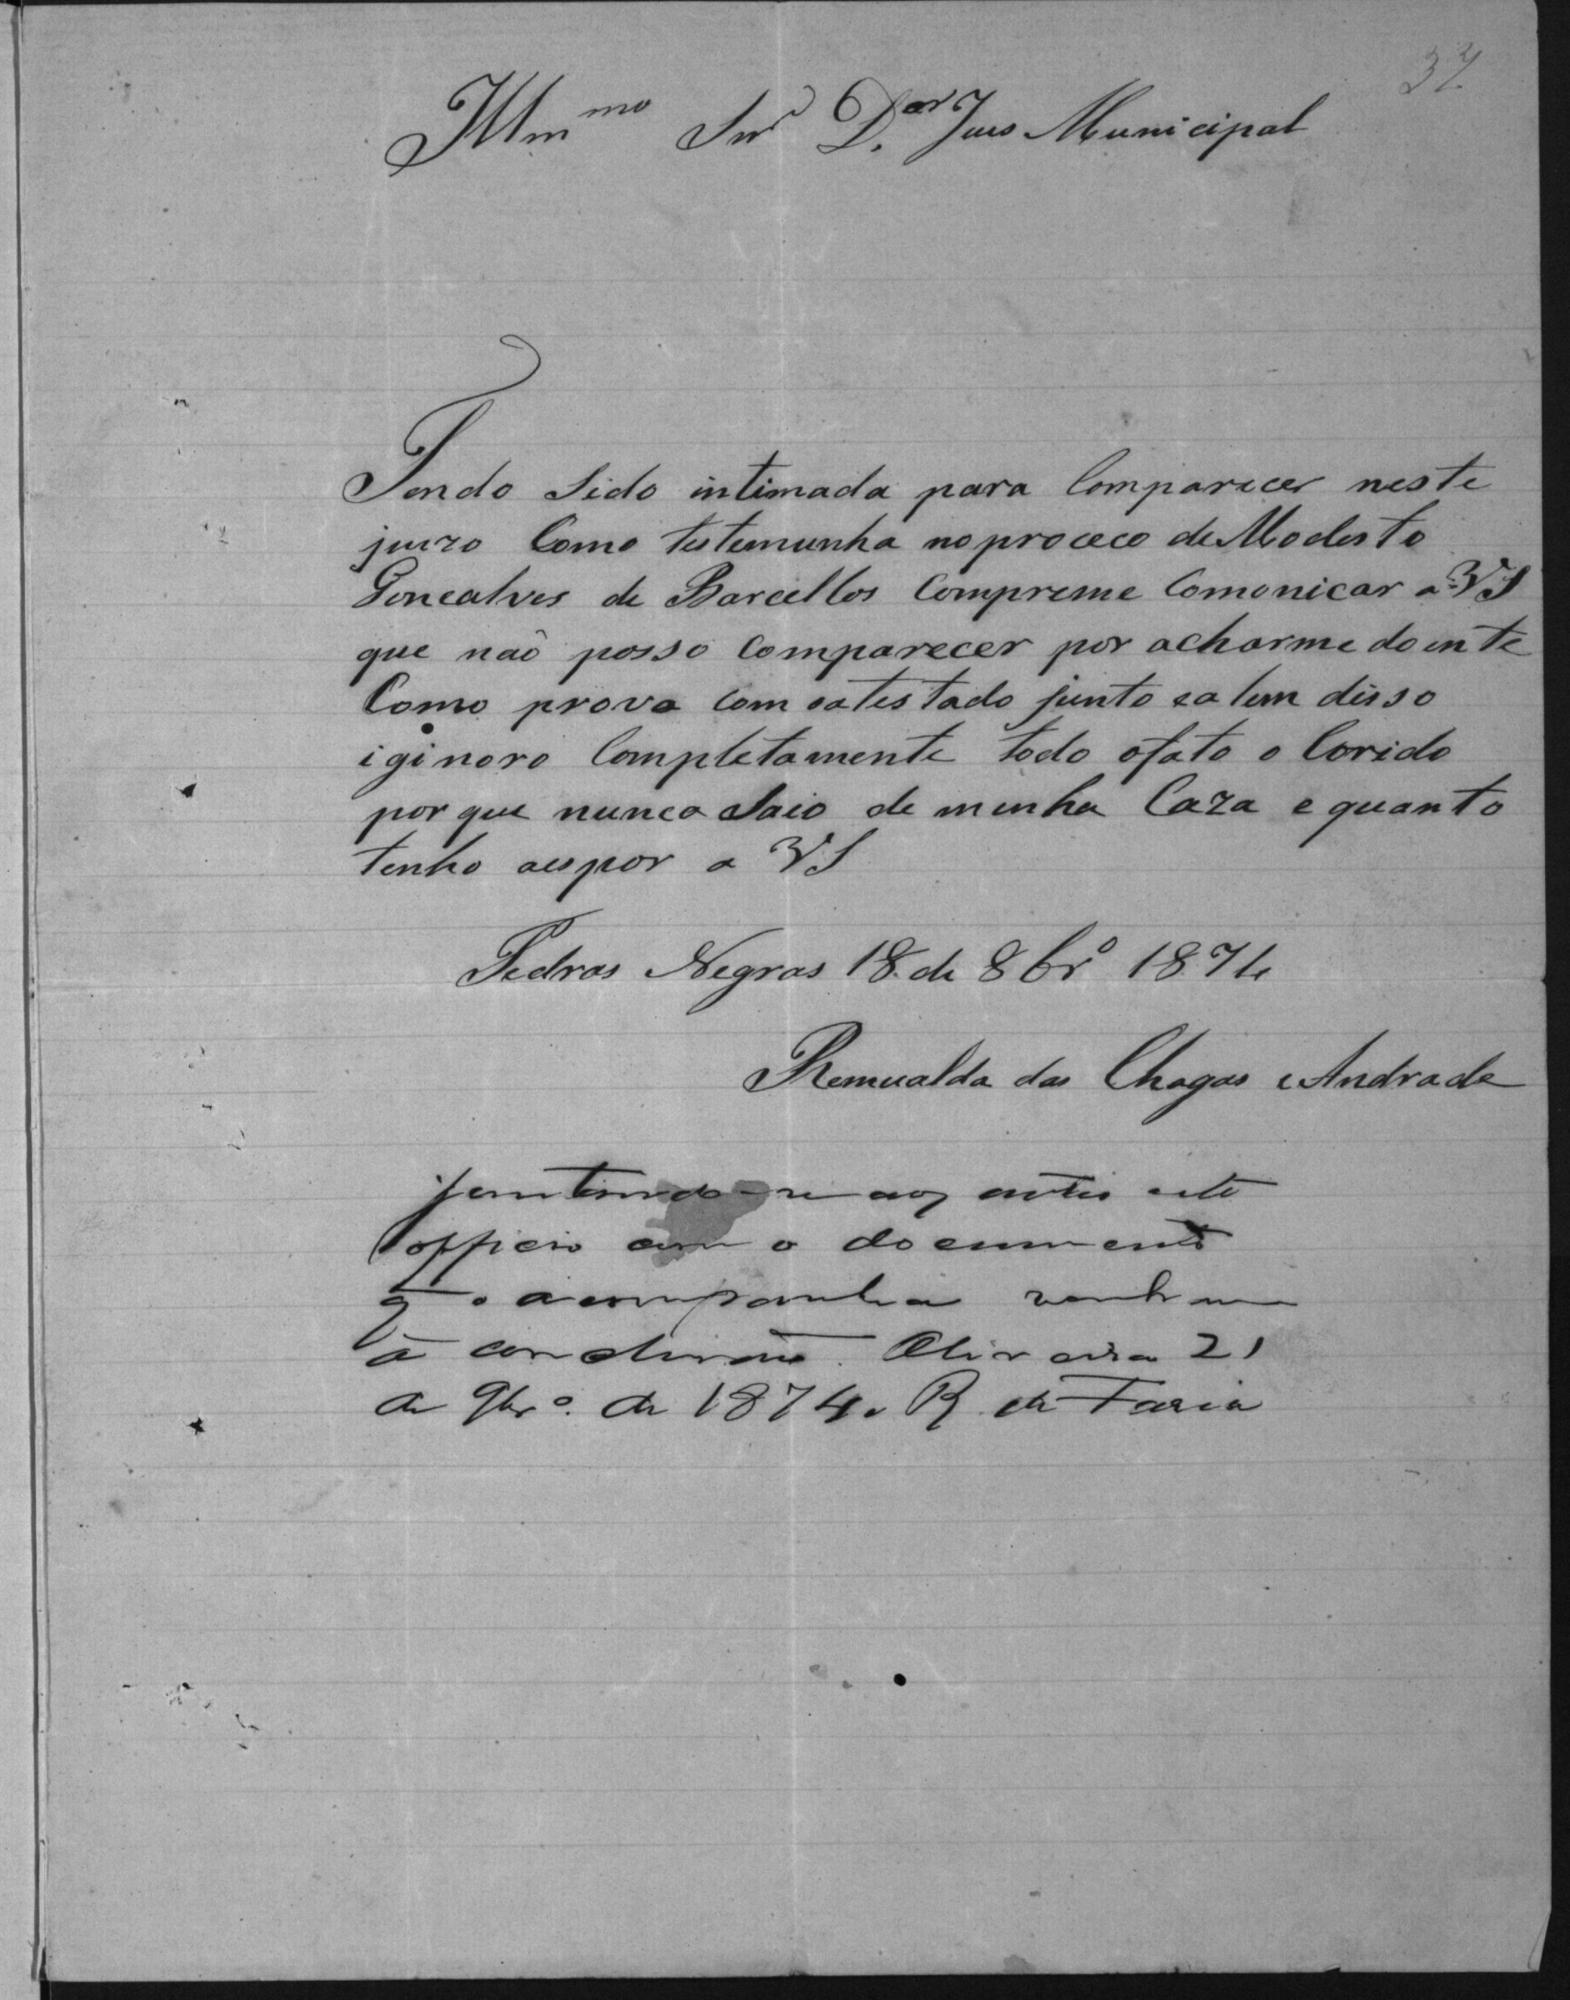 37
Illm mo Snr D.or Juis Municipal
Tendo Sido intimada para Comparecer neste
juizo Como testemunha no proceco de Modesto
Goncalves de Barcellos Compreme Comonicar a VS
que não posso Comparecer por acharme doente
Como provo com oatestado junto ealem disso
iginoro Completamente todo ofato o Corido
por que nunca Saio de minha Caza e quanto
tenho aespor a VS
Pedras Negras 18 de 8brº 1874
Romualda das Chagas e Andrade
juntando-se aos autos este
officio com o documento
q o acompanha venham
à conclusão. Oliveira 21
de 9brº. de 1874. R. de Faria